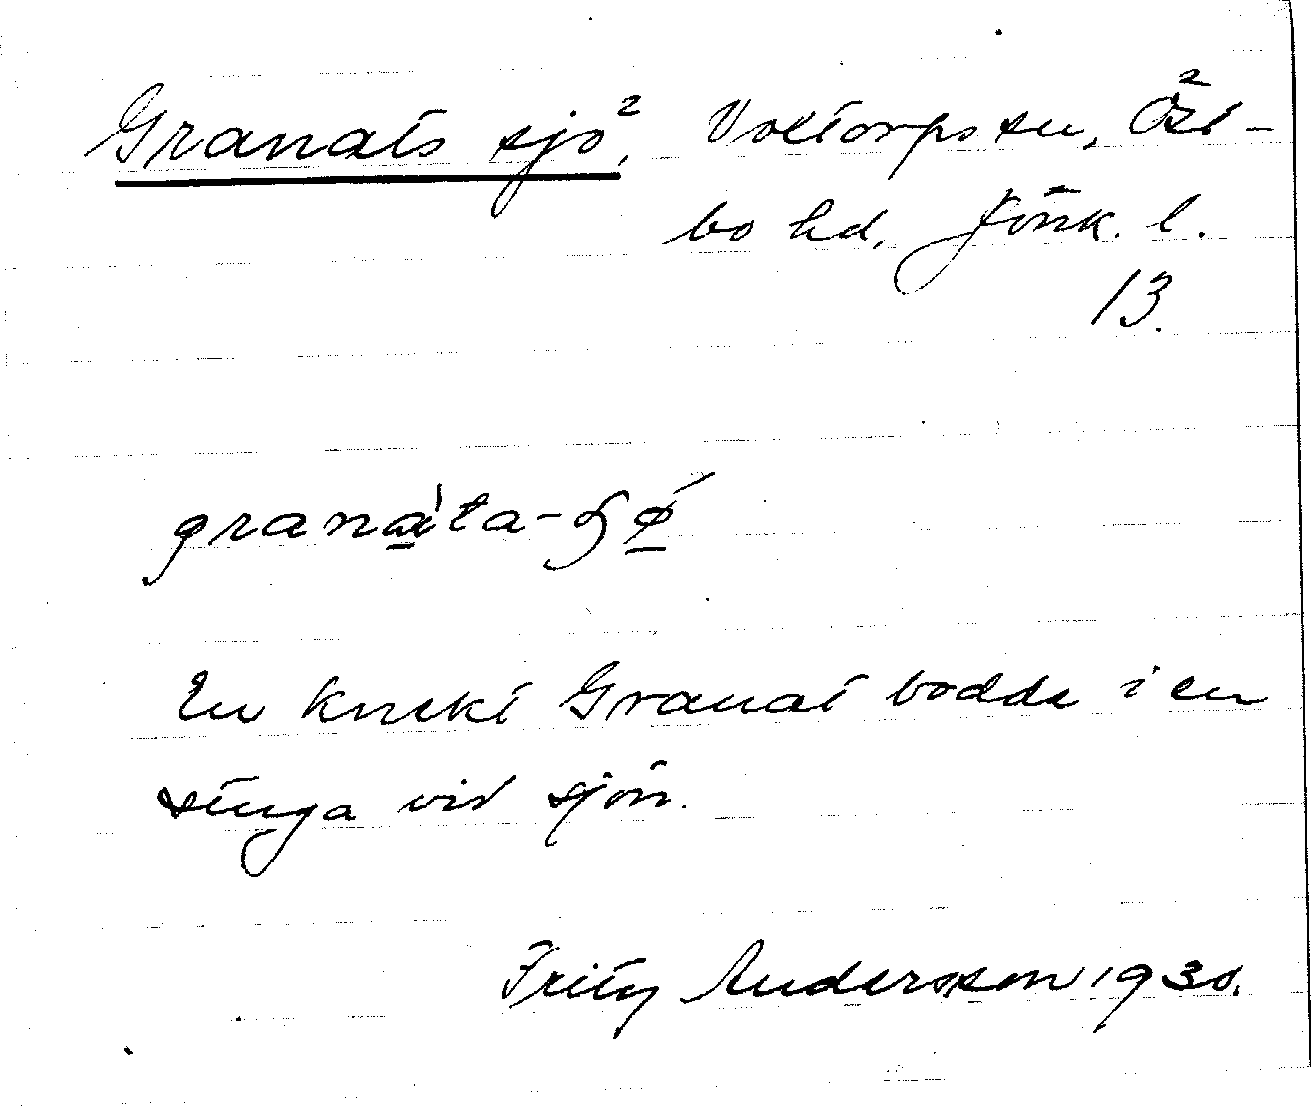 Granats sjö², Voxtorps sn, Öst-
bo hd, Jönk. l.
13.
granata-
En knekt Granat bodde i en
stuga vid sjön.
Fritz Andersson 1930.